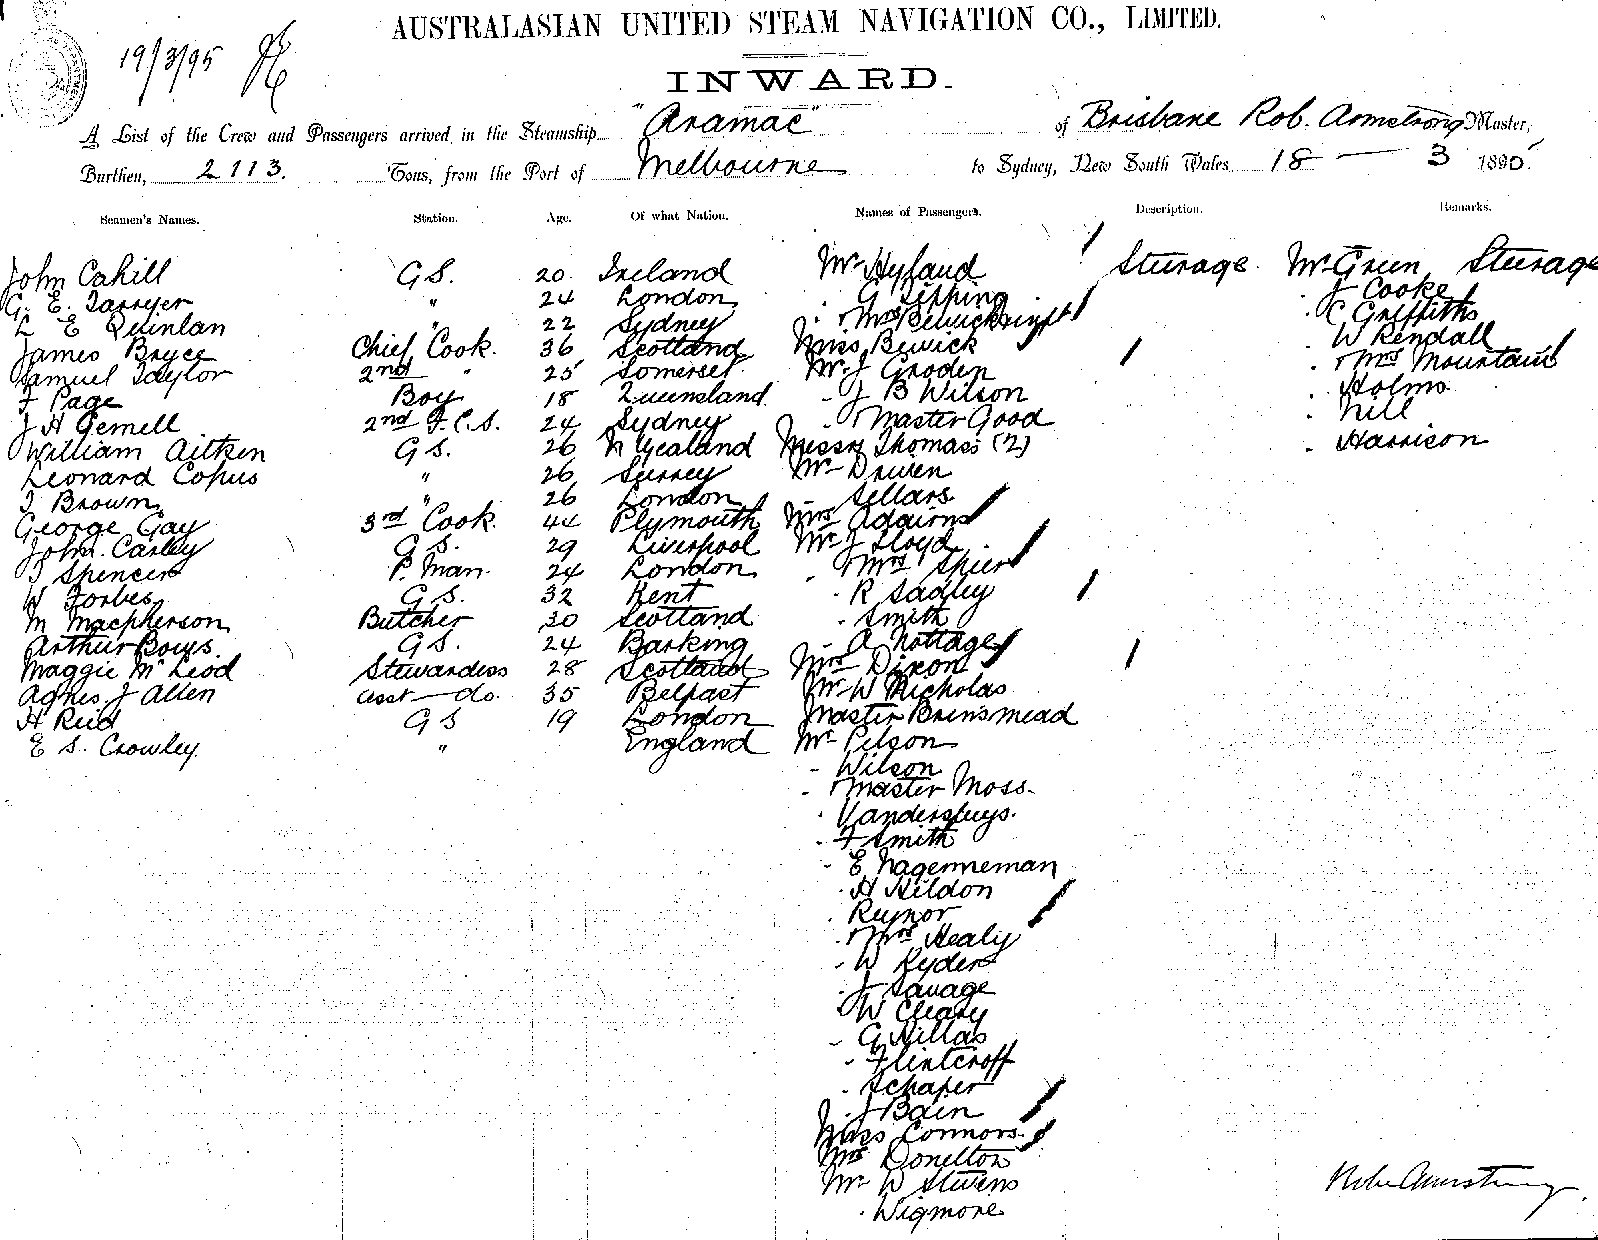 AUSTRALASIAN UNITED STEAM NAVIGATION CO., LIMITED.
19/3/95
INWARD.
A List of the Crew and Passengers arrived in the Steamship "Aramac" of Brisbane Rob. Armstrong Master,
Burthen, 2113. Tons, from the Port of Melbourne to Sydney, New South Wales 18 — 3 1895
Seamen's Names. Station. Age. Of what Nation. Names of Passengers. Description. Remarks.
John Cahill G S. 20 Ireland Mr Hyland Steerage Mr Green Steerage
G. E. Tarryer " 24 London - G Tipping - J Cooke
L E Quinlan " 22 Sydney - & Mrs Bewick & inft - C Griffiths
James Bryce Chief Cook. 36 Scotland Miss Bewick - W Kendall
Samuel Taylor 2nd " 25 Somerset Mr J Groden - & Mrs Mountain
F Page Boy 18 Queensland - J B Wilson - Holms
J H Gemell 2nd F.C.S. 24 Sydney - & Master Good - Nill
William Aitken G S. 26 N Zealand Messrs Thomass (2) - Harrison
Leonard Copus " 26 Surrey Mr Driven
J Brown " 26 London - Sellars
George Gay 3rd Cook. 44 Plymouth Mrs Adairns
John Carley G S. 29 Liverpool Mr J Lloyd
J Spencer P. Man. 24 London - & Mrs Spier
W Forbes G S. 32 Kent - R Sadley
M Macpherson Butcher 30 Scotland - Smith
Arthur Bows. G S. 24 Barking - A Nottage
Maggie McLeod Stewardess 28 Scotland Mrs Dixon
Agnes J Allen asst — do. 35 Belfast Mr W Nicholas
H Reid G S 19 London Master Brinsmead
E S. Crowley " England Mr Pilson
- Wilson
- & Master Moss.
- Vanderspuys.
- F Smith
- E Nagenneman
- H Hildon
- Rujnor
- & Mrs Healy
- W Ryder
- J Savage
- W Cleary
- G Nillas
- Flintcroff
- Schaper
- J Bain
Miss Connors
Mrs Donelton
Mr W Stevens
- Wigmore
Robt Armstrong